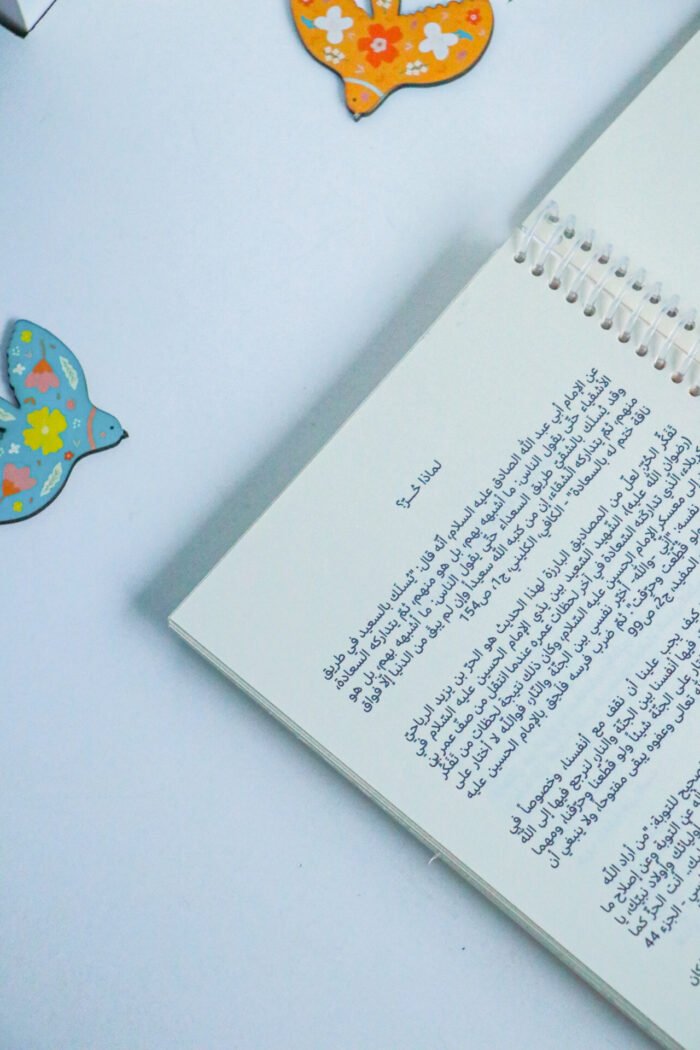 لماذا حُـرّ؟
عن الإمام أبي عبد الله الصادق عليه السلام، أنّه قال: "يُسلك بالسعيد في طريق
الأشقياء حتى يقول الناس: ما أشبهه بهم، بل هو منهم، ثمّ يتداركه السعادة،
وقد يُسلك بالشقي طريق السعداء حتى يقول الناس: ما أشبهه بهم، بل هو
منهم، ثمّ يتداركه الشقاء، إن من كتبه الله سعيداً وإن لم يبق من الدنيا إلا فواق
ناقة ختم له بالسعادة" - الكافي، الكليني، ج1 ص154
لعلّ من المصاديق البارزة لهذا الحديث هو الحرّ بن يزيد الرياحي
(رضوان الله عليه)، الشهيد السعيد بين يدي الإمام الحسين عليه السلام في
الذي تداركته السعادة في آخر لحظات عمره عندما انتقل من صفّ عمر بن
إلى معسكر الإمام الحسين عليه السلام، وكان ذلك نتيجة لحظات من تفكّر
"إنّي -والله- أخيّر نفسي بين الجنّة والنار، فوالله لا أختار على
قطّعت وحرّقت" ثمّ ضرب فرسه فلحق بالإمام الحسين عليه
المفيد، ج2 ص99
يجب علينا أن نقف مع أنفسنا، وخصوصاً في
فيها أنفسنا بين الجنّة والنار، لنرجع فيها إلى الله
على الجنّة شيئاً ولو قطّعنا وحرّقنا، ومهما
تعالى وعفوه يبقى مفتوحاً، ولا ينبغي أن
للتوبة: "من أراد الله
عن التوبة وعن إصلاح ما
أوليائك وأولاد نبيّك، يا
أنت الحرّ كما
الجزء 44